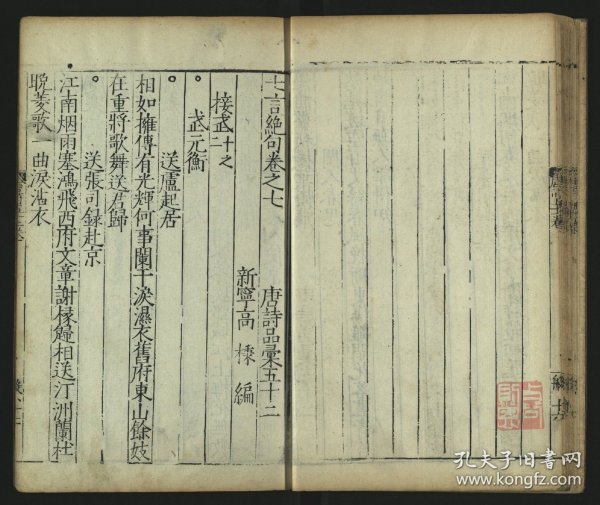 七言絶句卷之七 唐詩品彙五十二
新寧高棅編
接武二十之
武元衡
送盧起居
相如擁傳有光輝何事闌干淚濕衣舊府東山餘妓
在重將歌舞送君歸
送張司録赴京
江南烟雨塞鴻飛西府文章謝掾歸相送汀洲蘭杜
晚菱歌一曲淚沾衣
孔夫子旧书网
www.kongfz.com